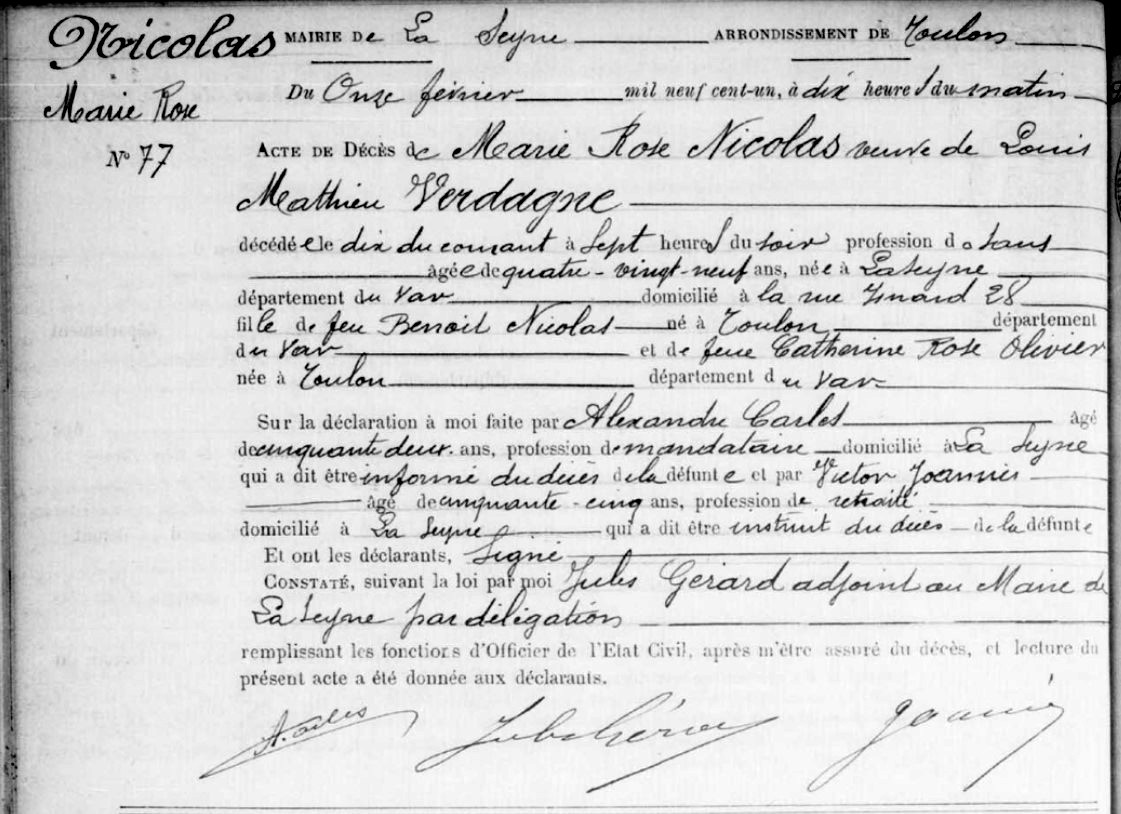 Nicolas MAIRIE De La Seyne ARRONDISSEMENT DE Toulon
Marie Rose
Du Onze février mil neuf cent-un, à dix heures du matin
N° 77
ACTE DE DÉCÈS de Marie Rose Nicolas veuve de Louis
Mathieu Verdagne
décédée le dix du courant à Sept heures du soir profession d sans
âgée de quatre-vingt-neuf ans, née à La Seyne
département du Var domicilié à la rue Isnard 28
fille de feu Benoit Nicolas né à Toulon département
du Var et de feue Catherine Rose Olivier
née à Toulon département du Var
Sur la déclaration à moi faite par Alexandre Carles âgé
de cinquante deux ans, profession de mandataire domicilié à La Seyne
qui a dit être informé du décès de la défunte et par Victor Joannis
âgé de cinquante-cinq ans, profession de retraité
domicilié à La Seyne qui a dit être instruit du décès de la défunte
Et ont les déclarants, Signé
CONSTATÉ, suivant la loi par moi Jules Gérard adjoint au Maire de
La Seyne par délégation
remplissant les fonctions d'Officier de l'Etat Civil, après m'être assuré du décès, et lecture du
présent acte a été donnée aux déclarants.